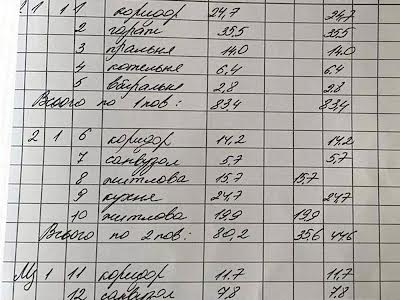 1 1 1 1 коридор 24,7 24,7
2 гараж 35,5 35,5
3 пральня 14.0 14.0
4 котельня 6,4 6,4
5 вбиральня 2,8 2,8
Всього по 1 пов: 83,4 83,4
2 1 6 коридор 14,2 14,2
7 санвузол 5,7 5,7
8 житлова 15,7 15,7
9 кухня 24,7 24,7
10 житлова 19,9 19,9
Всього по 2 пов: 80,2 35,6 44,6
Мз 1 11 коридор 11.7 11,7
12 санвузол 7,8 7,8